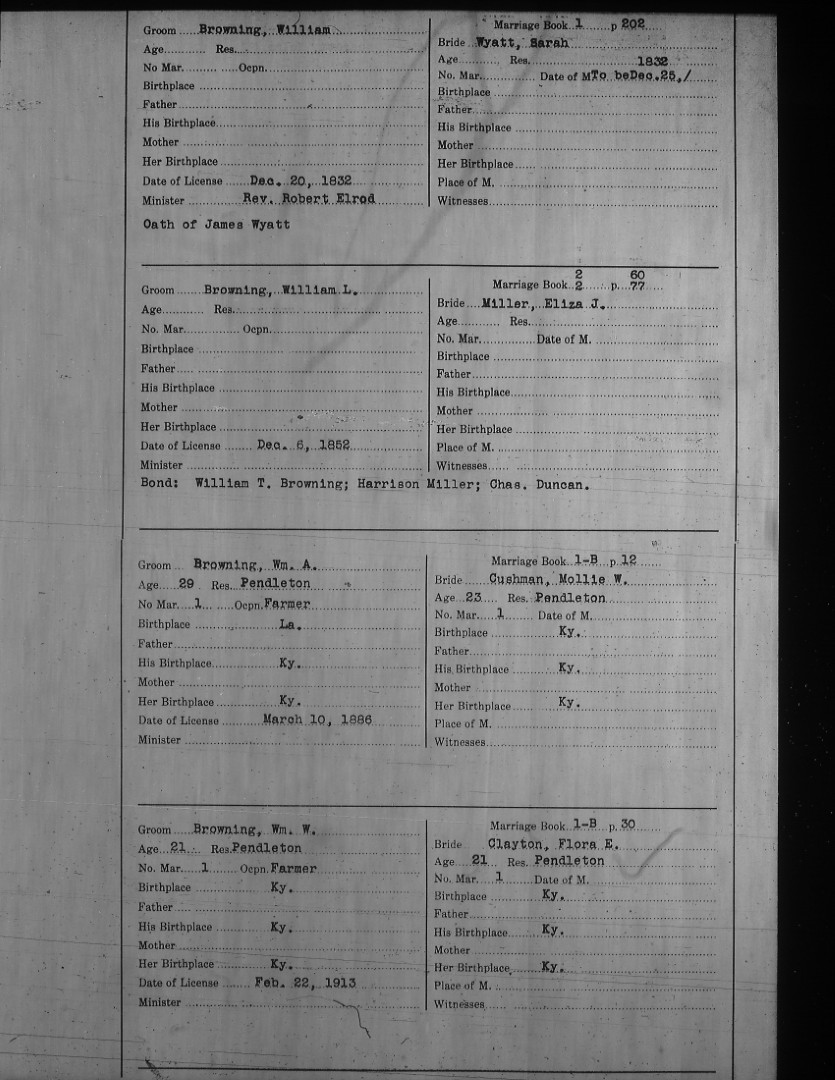 Groom Browning, William
Age Res.
No Mar. Ocpn.
Birthplace
Father
His Birthplace
Mother
Her Birthplace
Date of License Dec. 20, 1832
Minister Rev. Robert Elrod
Oath of James Wyatt
Marriage Book 1 p 202
Bride Wyatt, Sarah
Age Res. 1832
No. Mar. Date of M To be Dec. 25, /
Birthplace
Father
His Birthplace
Mother
Her Birthplace
Place of M.
Witnesses
Groom Browning, William L.
Age Res.
No. Mar. Ocpn.
Birthplace
Father
His Birthplace
Mother
Her Birthplace
Date of License Dec. 6, 1852
Minister
2 60
Marriage Book 2 p. 77
Bride Miller, Eliza J.
Age Res.
No. Mar. Date of M.
Birthplace
Father
His Birthplace
Mother
Her Birthplace
Place of M.
Witnesses
Bond: William T. Browning; Harrison Miller; Chas. Duncan.
Groom Browning, Wm. A.
Age 29 Res. Pendleton
No Mar. 1 Ocpn. Farmer
Birthplace La.
Father
His Birthplace Ky.
Mother
Her Birthplace Ky.
Date of License March 10, 1886
Minister
Marriage Book 1-B p 12
Bride Cushman, Mollie W.
Age 23 Res. Pendleton
No. Mar. 1 Date of M.
Birthplace Ky.
Father
His Birthplace Ky.
Mother
Her Birthplace Ky.
Place of M.
Witnesses
Groom Browning, Wm. W.
Age 21 Res. Pendleton
No. Mar. 1 Ocpn. Farmer
Birthplace Ky.
Father
His Birthplace Ky.
Mother
Her Birthplace Ky.
Date of License Feb. 22, 1913
Minister
Marriage Book 1-B p. 30
Bride Clayton, Flora E.
Age 21 Res. Pendleton
No. Mar. 1 Date of M.
Birthplace Ky.
Father
His Birthplace Ky.
Mother
Her Birthplace Ky.
Place of M.
Witnesses